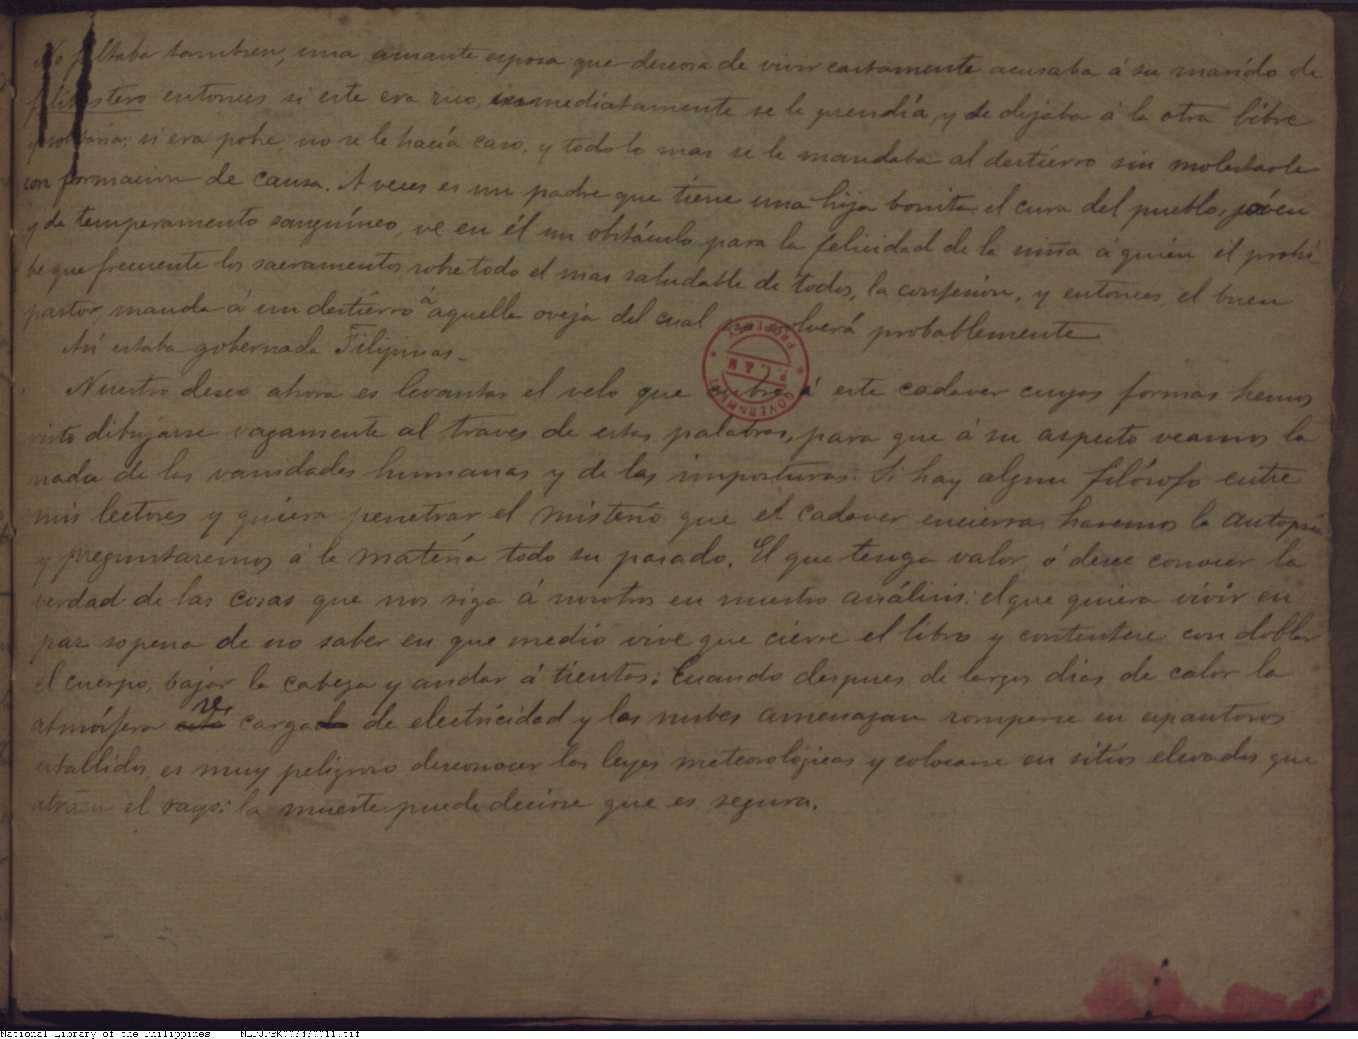 No faltaba tambien, una amante esposa que deseosa de vivir castamente acusaba á su marído de
filibustero entonces si este era rico, inmediatamente se le prendía, y se dejaba á la otra libre
y solitaria; si era pobre, no se le hacía caso, y todo lo mas se le mandaba al destierro sin molestarle
con formacion de causa. A veces es un padre que tiene una hija bonita: el cura del pueblo, jóven
y de temperamento sanguíneo, ve en él un obstáculo para la felicidad de la niña á quien él prohi-
be que frecuente los sacramentos sobre todo el mas saludable de todos, la confesion, y entonces, el buen
pastor manda á un destierro á aquella oveja del cual volverá probablemente
Así estaba gobernada Filipinas.
Nuestro deseo ahora es levantar el velo que cubre á este cadaver cuyas formas hemos
visto dibujarse vagamente al traves de estas palabras, para que á su aspecto veamos la
nada de las vanidades humanas y de las imposturas. Si hay algun filósofo entre
mis lectores y quiera penetrar el misterio que el cadaver encierra haremos la autopsia
y preguntaremos á la materia todo su pasado. El que tenga valor ó desee conocer la
verdad de las cosas que nos siga á nosotros en nuestro análisis: el que quiera vivir en
paz sopena de no saber en que medio vive que cierre el libro y contentese con doblar
el cuerpo, bajar la cabeza y andar á tientas; Cuando despues de largos dias de calor la
atmósfera se carga de electricidad y las nubes amenazan romperse en espantosos
estallidos, es muy peligroso desconocer las leyes meteorológicas y colocarse en sitios elevados que
atraen el rayo: la muerte puede decirse que es segura.
GOVERNMENT PROPERTY
P.L.&M.
National Library of the Philippines